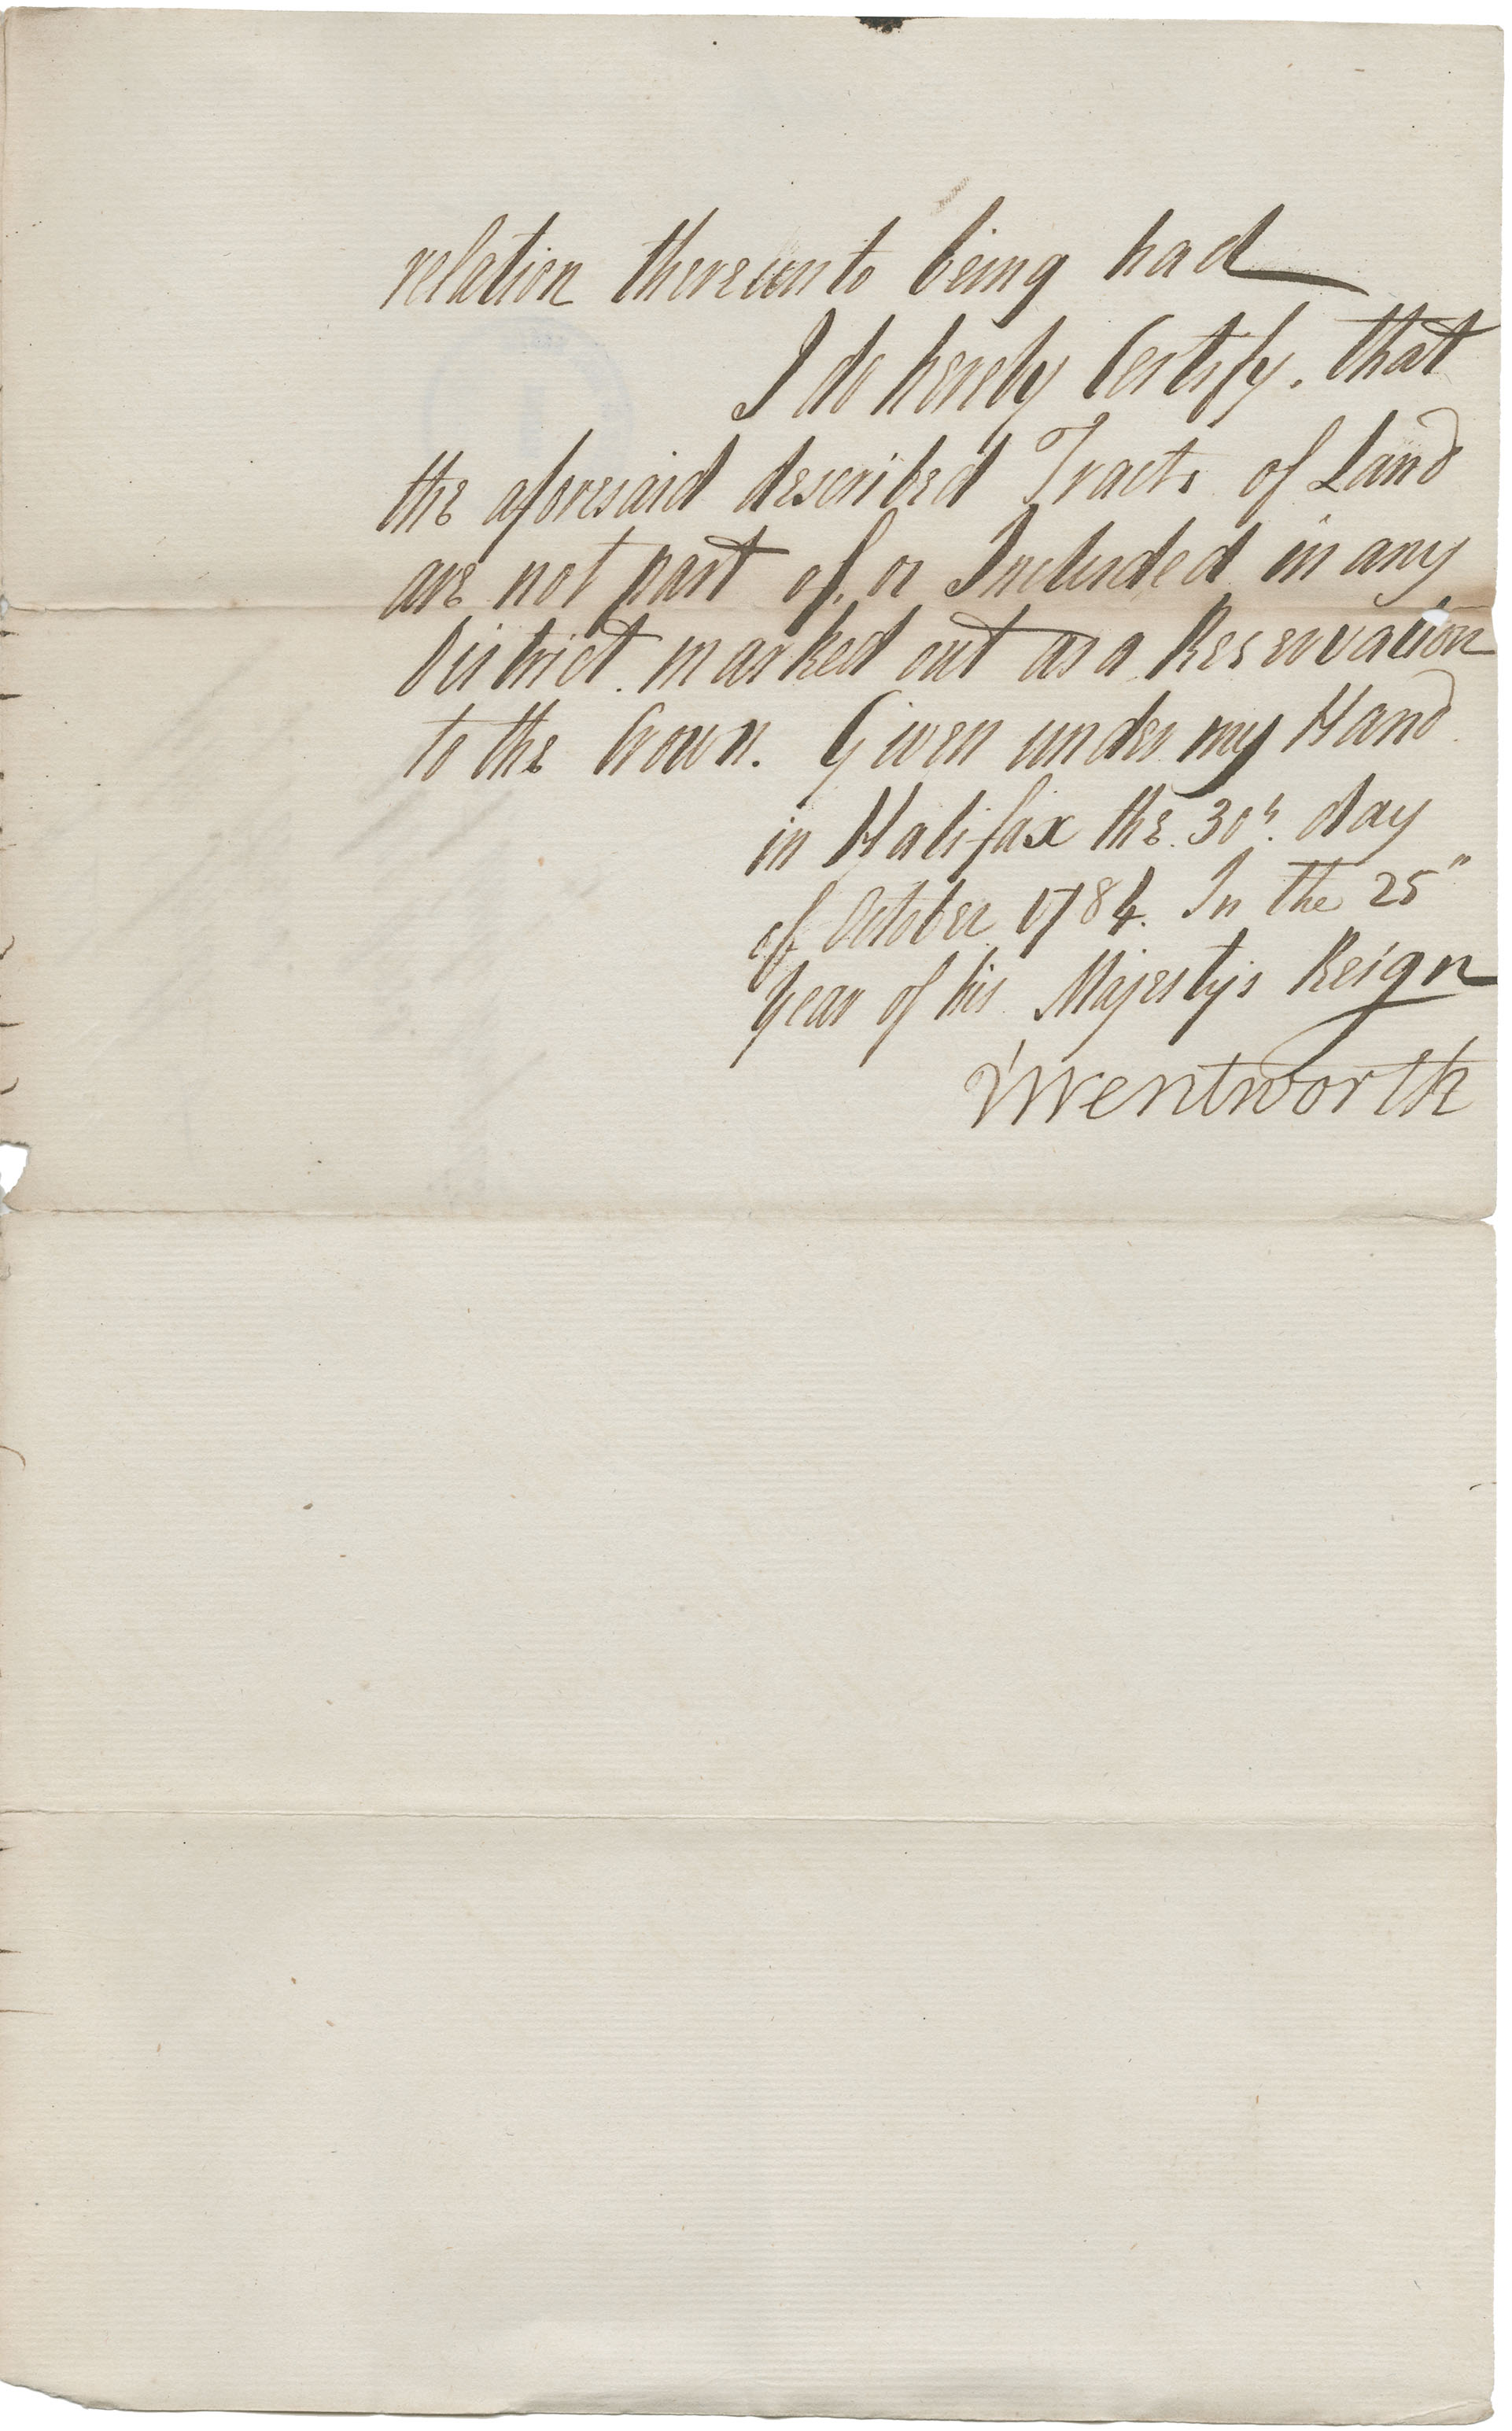 relation thereunto being had
I do hereby Certify, that
the aforesaid described Tracts of Land
are not part of, or Included in any
District marked out as a Reservation
to the Crown. Given under my Hand
in Halifax the 30th. day
of October 1784. In the 25"
Year of his Majesty's Reign
J Wentworth